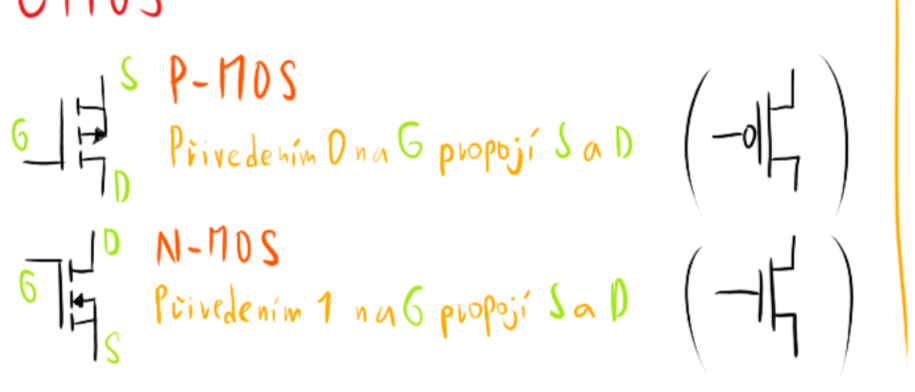 CMOS
S
P-MOS
G
Přivedením 0 na G propojí S a D
D
D
N-MOS
G
Přivedením 1 na G propojí S a D
S